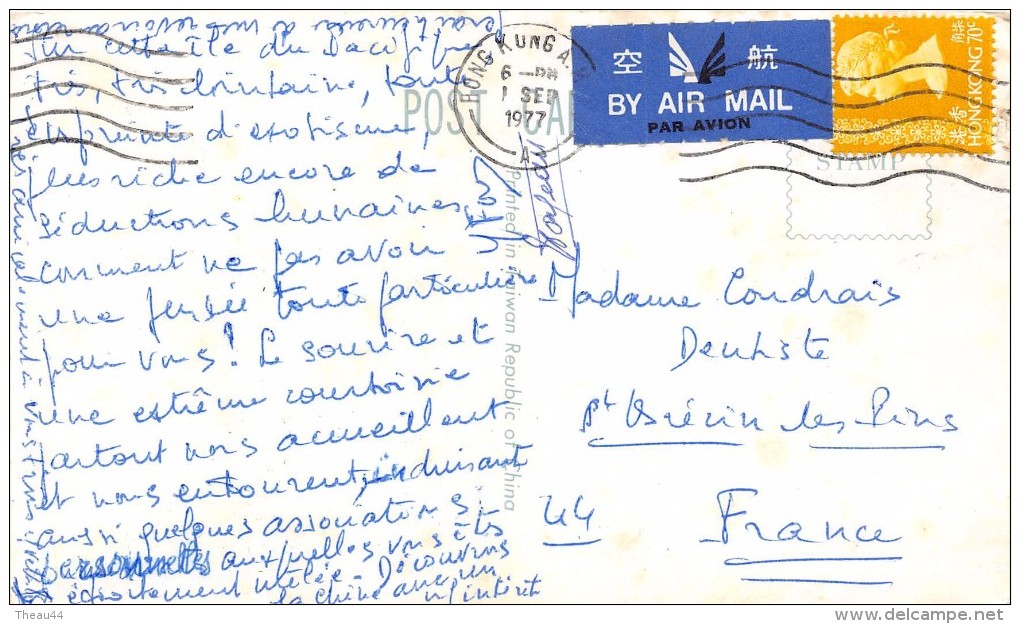 Sur cette île du Pacifique
très, très lointaine, toute
empreinte d'exotisme,
plus riche encore de
séductions humaines,
comment ne pas avoir
une pensée toute particulière
pour vous! Le sourire et
une extrême courtoisie
partout nous accueillent
et nous entourent, induisant
aussi quelques associations
personnelles auxquelles vous êtes
étroitement mêlée - Découvrons
la Chine avec un intérêt
très amicalement à vous tous
POST CARD
HONG KONG
6 - PM
1 SEP
1977
A
空 航
BY AIR MAIL
PAR AVION
香港
HONG KONG 70c
STAMP
Printed in Taiwan Republic of China
Madame Condrais
Dentiste
St Brévin les Pins
44
France
Theau44
delcampe.net